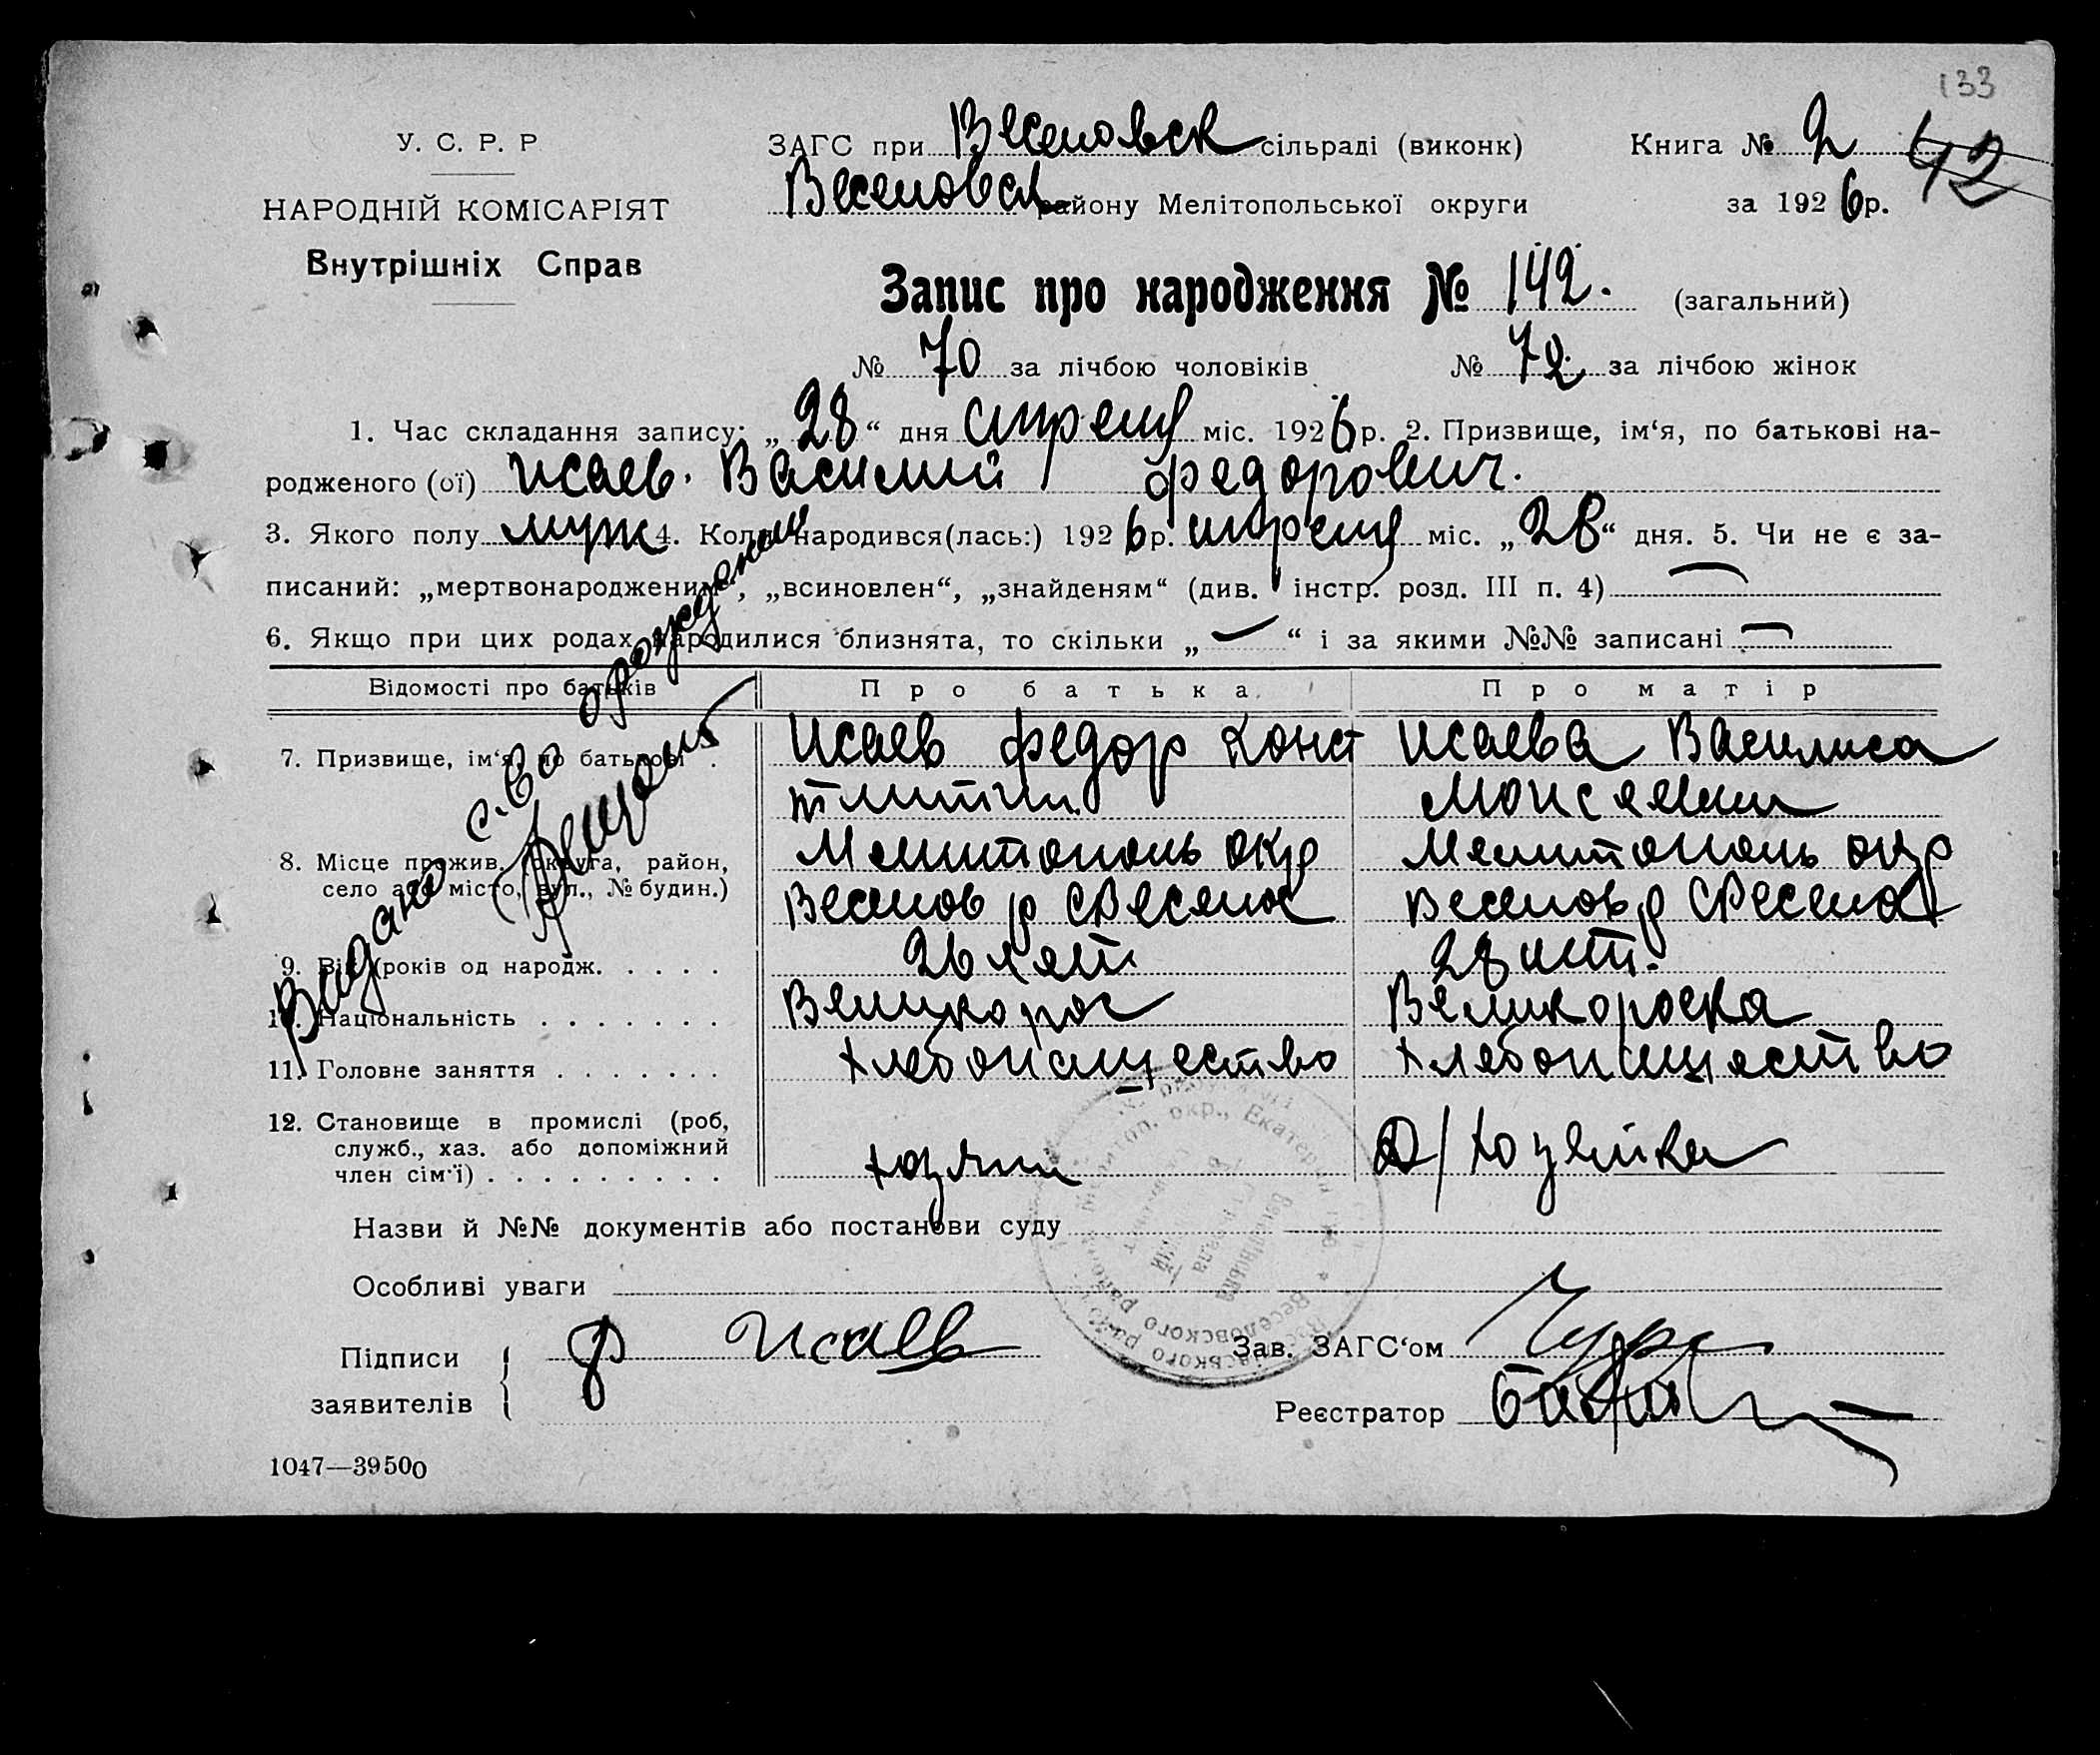 133
У. С. Р. Р
НАРОДНІЙ КОМІСАРІЯТ
Внутрішніх Справ
ЗАГС при Веселовск сільраді (виконк)
Веселовск району Мелітопольської округи
Книга № 2 42
за 1926 р.
Запис про народження № 142. (загальний)
№ 70 за лічбою чоловіків № 72 за лічбою жінок
1. Час складання запису: „28“ дня апреля міс. 1926 р. 2. Призвище, ім‘я, по батькові на-
родженого (ої) Исаев. Василий Федорович.
3. Якого полу муж 4. Коли народився(лась:) 1926 р. апреля міс. „28“ дня. 5. Чи не є за-
писаний: „мертвонародженим“, „всиновлен“, „знайденям“ (див. інстр. розд. III п. 4)
6. Якщо при цих родах народилися близнята, то скільки „—“ і за якими №№ записані —
Відомості про батьків Про батька Про матір
7. Призвище, ім‘я, по батькові . Исаев Федор Конст Исаева Василиса
Моисеевна
8. Місце прожив. (округа, район, Мелитополь окр Мелитополь окр
село або місто, вул., № будин.) Веселов р с Веселое Веселов р с Веселое
9. Вік (років од народж. . . . . 26 лет 28 лет.
10. Національність . . . . . . . Великорос Великороска
11. Головне заняття . . . . . . . Хлебопашество Хлебопашество
12. Становище в промислі (роб,
служб., хаз. або допоміжний
член сім‘ї) . . . . . . . . . хозяин Д/хозяйка
Видано с-во о рождении
Назви й №№ документів або постанови суду
Особливі уваги
Підписи
заявителів
Ф Исаев
Зав. ЗАГС‘ом
Реєстратор
1047—39500